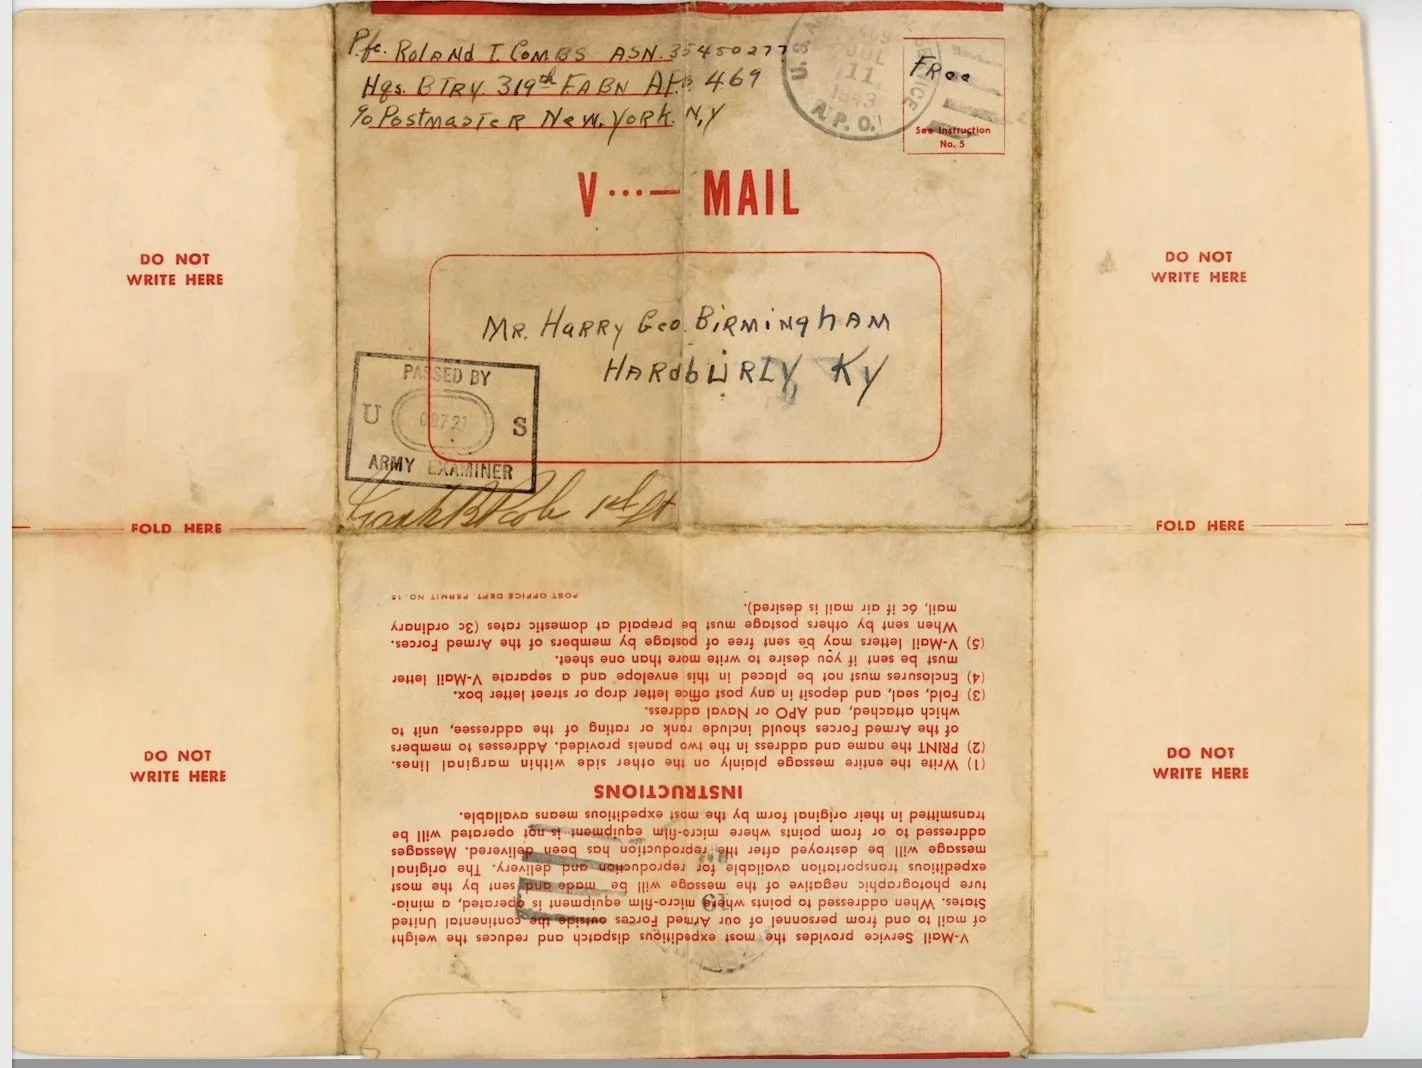 Pfc. Roland T. Combs ASN. 35450277
Hqs. BTRY. 319th FABN APO 469
c/o Postmaster New York. N,Y
U.S. ARMY POSTAL SERVICE
469
JUL
11
1943
A.P.O.
Free
See Instruction
No. 5
V ···— MAIL
DO NOT
WRITE HERE
DO NOT
WRITE HERE
Mr. Harry Geo. Birmingham
Hardburly Ky
PASSED BY
U S
ARMY EXAMINER
1st Lt
FOLD HERE
FOLD HERE
DO NOT
WRITE HERE
DO NOT
WRITE HERE
V-Mail Service provides the most expeditious dispatch and reduces the weight
of mail to and from personnel of our Armed Forces outside the continental United
States. When addressed to points where micro-film equipment is operated, a minia-
ture photographic negative of the message will be made and sent by the most
expeditious transportation available for reproduction and delivery. The original
message will be destroyed after the reproduction has been delivered. Messages
addressed to or from points where micro-film equipment is not operated will be
transmitted in their original form by the most expeditious means available.
INSTRUCTIONS
(1) Write the entire message plainly on the other side within marginal lines.
(2) PRINT the name and address in the two panels provided. Addresses to members
of the Armed Forces should include rank or rating of the addressee, unit to
which attached, and APO or Naval address.
(3) Fold, seal, and deposit in any post office letter drop or street letter box.
(4) Enclosures must not be placed in this envelope and a separate V-Mail letter
must be sent if you desire to write more than one sheet.
(5) V-Mail letters may be sent free of postage by members of the Armed Forces.
When sent by others postage must be prepaid at domestic rates (3c ordinary
mail, 6c if air mail is desired).
POST OFFICE DEPT. PERMIT NO. 15